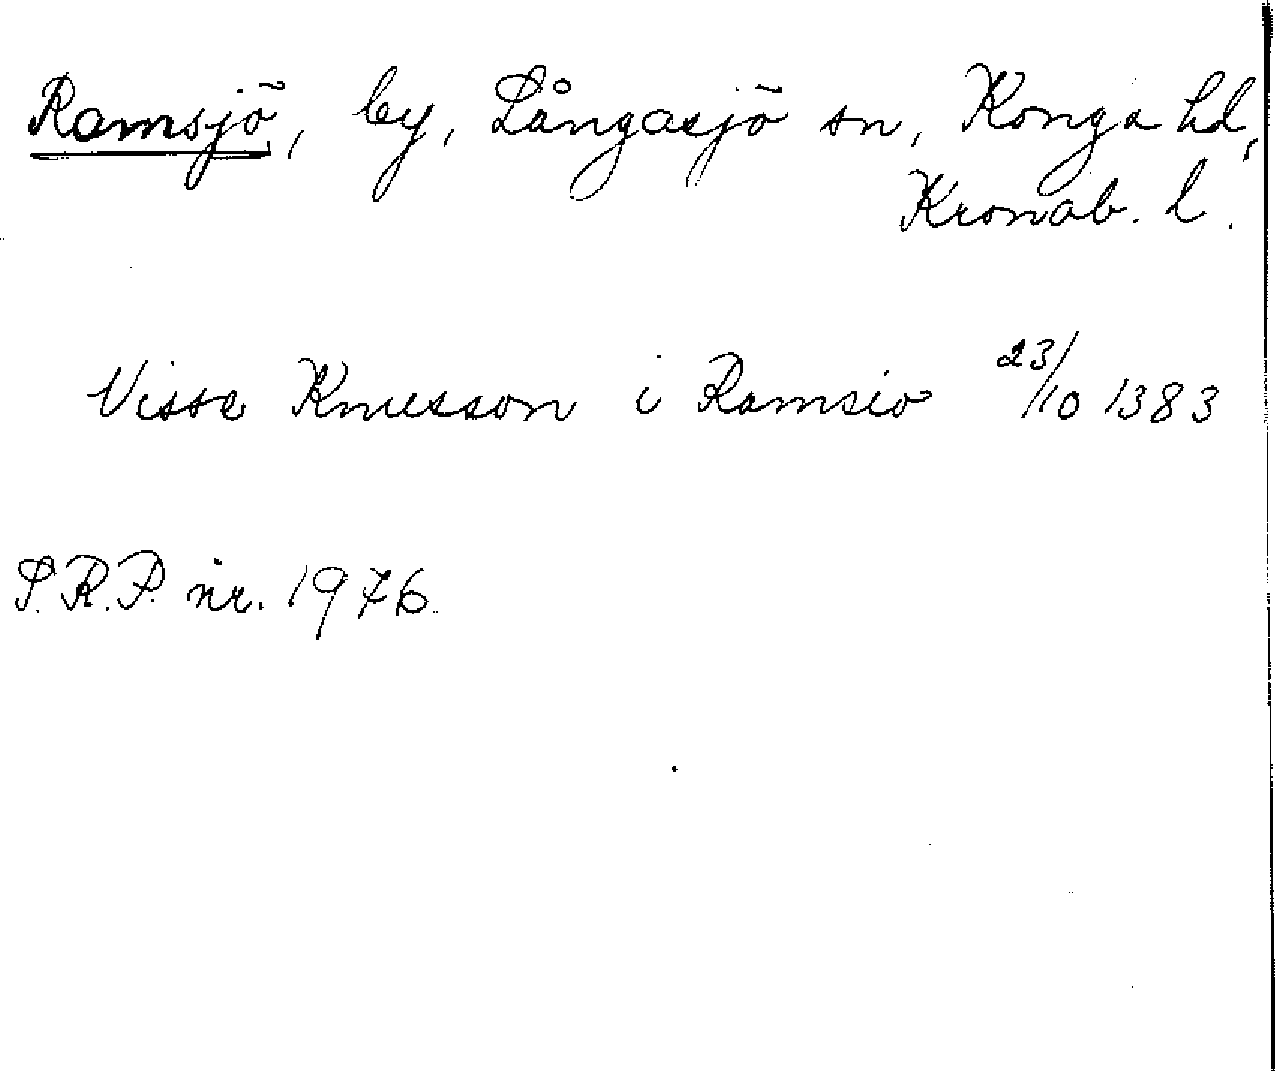 Ramsjö, by, Långasjö sn, Konga hd,
Kronob. l.
Visse Knutsson i Ramsio 23/10 1383
S.R.P. nr. 1976.